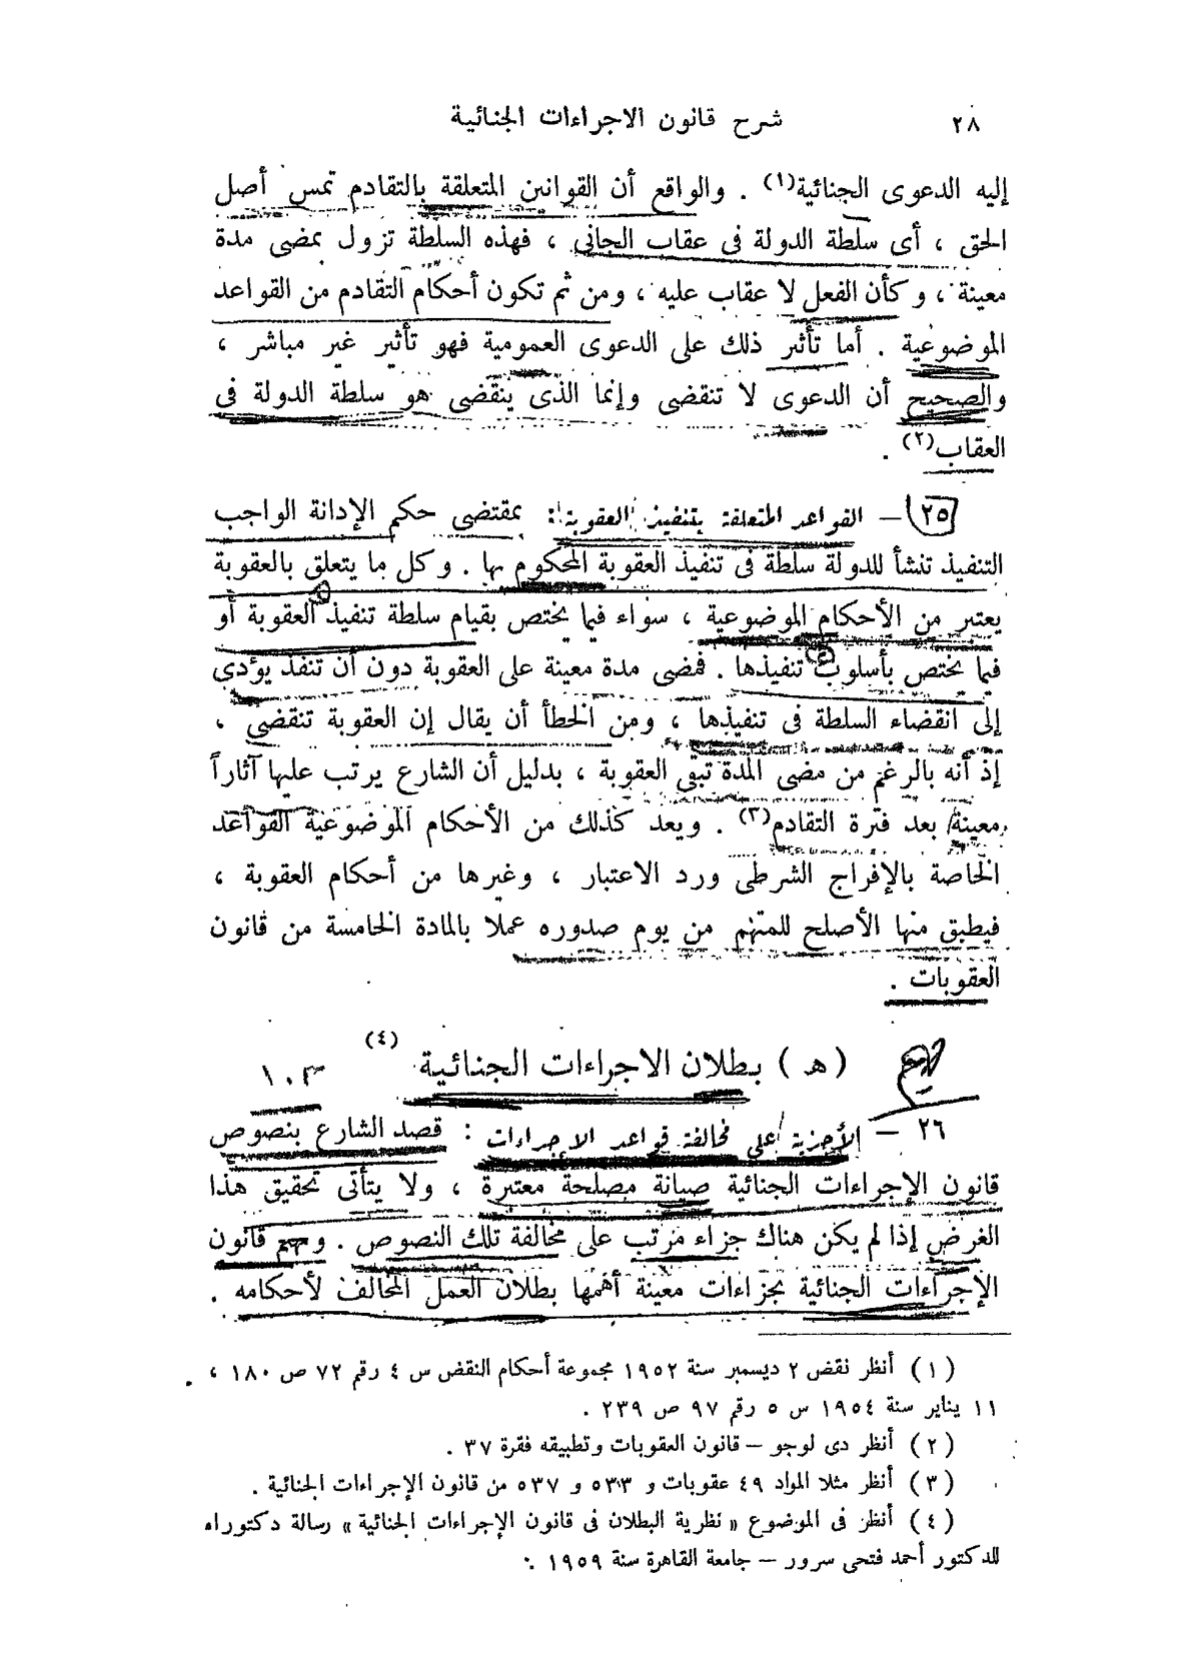 ٢٨
شرح قانون الاجراءات الجنائية
إليه الدعوى الجنائية(١) . والواقع أن القوانين المتعلقة بالتقادم تمس أصل
الحق ، أى سلطة الدولة فى عقاب الجانى ، فهذه السلطة تزول بمضى مدة
معينة ، وكأن الفعل لا عقاب عليه ، ومن ثم تكون أحكام التقادم من القواعد
الموضوعية . أما تأثير ذلك على الدعوى العمومية فهو تأثير غير مباشر ،
والصحيح أن الدعوى لا تنقضى وإنما الذى ينقضى هو سلطة الدولة فى
العقاب(٢) .
٢٥ – القواعد المتعلقة بتنفيذ العقوبة : بمقتضى حكم الإدانة الواجب
التنفيذ تنشأ للدولة سلطة فى تنفيذ العقوبة المحكوم بها . وكل ما يتعلق بالعقوبة
يعتبر من الأحكام الموضوعية ، سواء فيما يختص بقيام سلطة تنفيذ العقوبة أو
فيما يختص بأسلوب تنفيذها . فمضى مدة معينة على العقوبة دون أن تنفذ يؤدى
إلى انقضاء السلطة فى تنفيذها ، ومن الخطأ أن يقال إن العقوبة تنقضى ،
إذ أنه بالرغم من مضى المدة تبقى العقوبة ، بدليل أن الشارع يرتب عليها آثاراً
معينة بعد فترة التقادم(٣) . ويعد كذلك من الأحكام الموضوعية القواعد
الخاصة بالإفراج الشرطى ورد الاعتبار ، وغيرها من أحكام العقوبة ،
فيطبق منها الأصلح للمتهم من يوم صدوره عملا بالمادة الخامسة من قانون
العقوبات .
(ه) بطلان الاجراءات الجنائية (٤)
١٠٣
٢٦ – الأجزية على مخالفة قواعد الإجراءات : قصد الشارع بنصوص
قانون الإجراءات الجنائية صيانة مصلحة معتبرة ، ولا يتأتى تحقيق هذا
الغرض إذا لم يكن هناك جزاء مرتب على مخالفة تلك النصوص . وبهم قانون
الإجراءات الجنائية بجزاءات معينة أهمها بطلان العمل المخالف لأحكامه .
(١) أنظر نقض ٢ ديسمبر سنة ١٩٥٢ مجموعة أحكام النقض س ٤ رقم ٧٢ ص ١٨٠ ،
١١ يناير سنة ١٩٥٤ س ٥ رقم ٩٧ ص ٢٣٩ .
(٢) أنظر دى لوجو – قانون العقوبات وتطبيقه فقرة ٣٧ .
(٣) أنظر مثلا المواد ٤٩ عقوبات و ٥٣٣ و ٥٣٧ من قانون الإجراءات الجنائية .
(٤) أنظر فى الموضوع « نظرية البطلان فى قانون الإجراءات الجنائية » رسالة دكتوراه
للدكتور أحمد فتحى سرور – جامعة القاهرة سنة ١٩٥٩ .